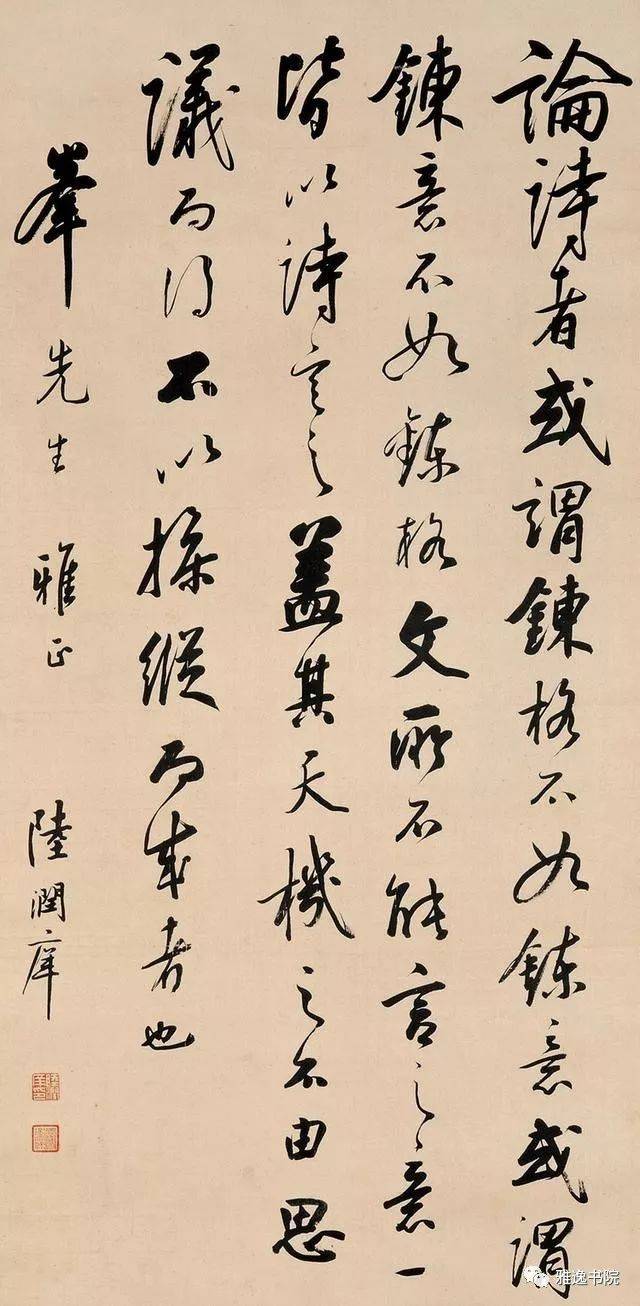 論詩者或謂鍊格不如鍊意或謂
鍊意不如鍊格文所不能言之意一
皆以詩言之蓋其天機之不由思
議而得不以操縱而成者也
峯先生 雅正 陸潤庠
雅逸书院